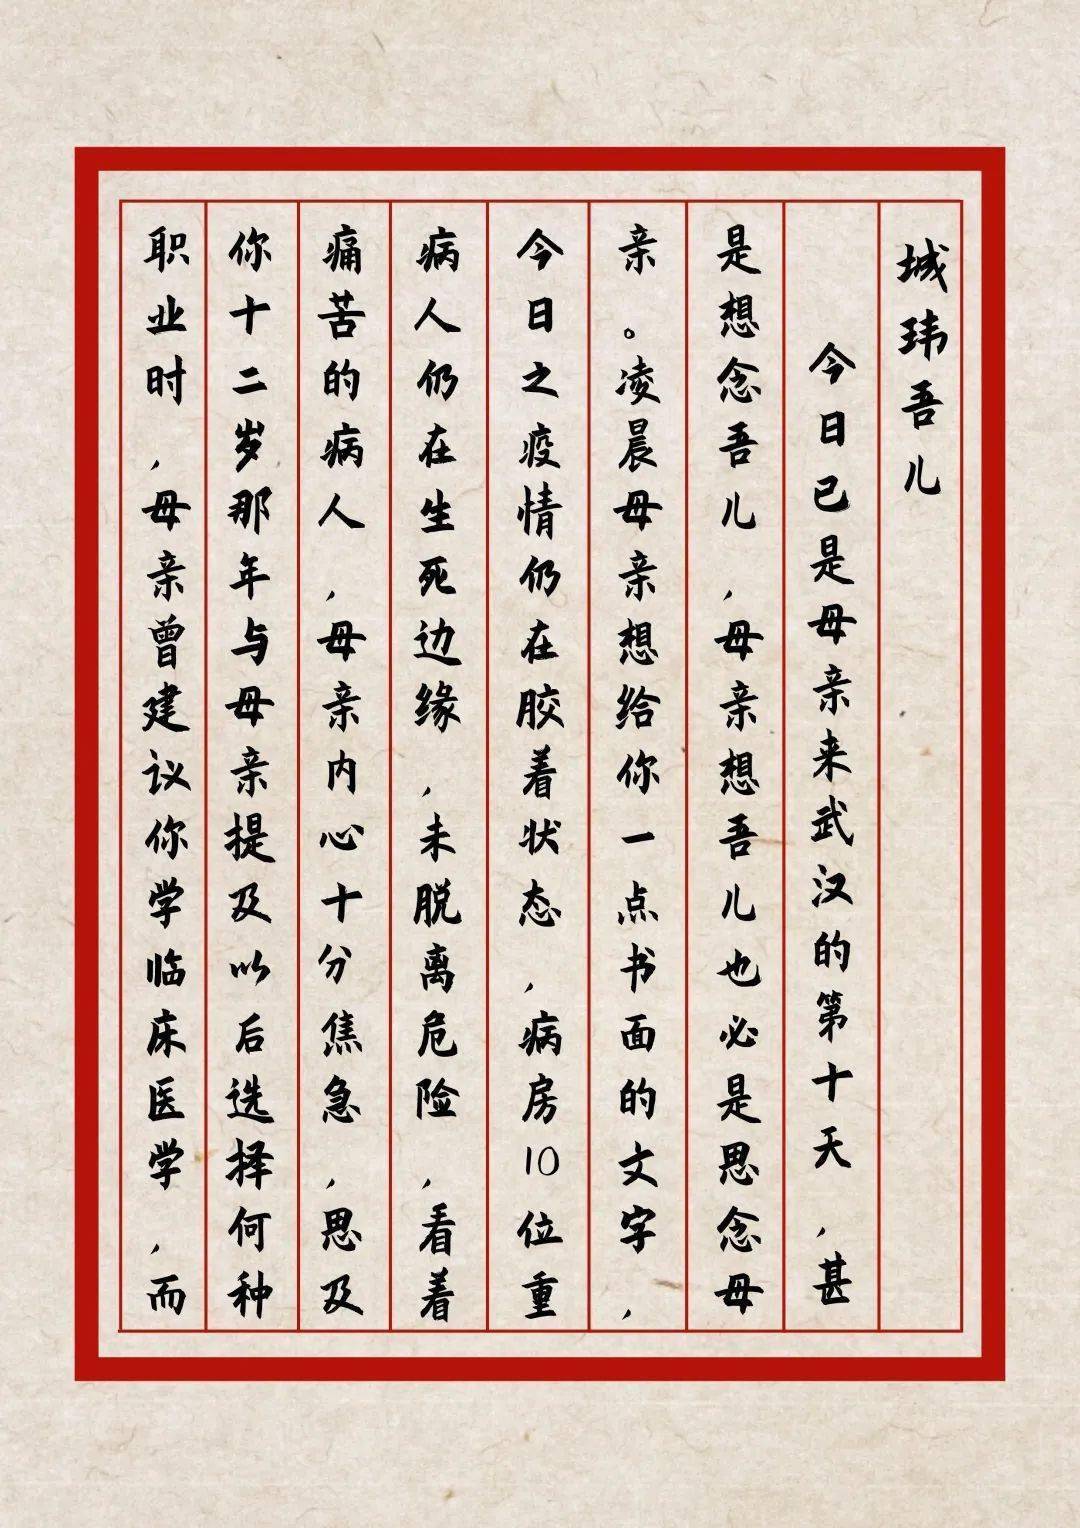 城玮吾儿
今日已是母亲来武汉的第十天，甚
是想念吾儿，母亲想吾儿也必是思念母
亲。凌晨母亲想给你一点书面的文字，
今日之疫情仍在胶着状态，病房10位重
病人仍在生死边缘，未脱离危险，看着
痛苦的病人，母亲内心十分焦急，思及
你十二岁那年与母亲提及以后选择何种
职业时，母亲曾建议你学临床医学，而